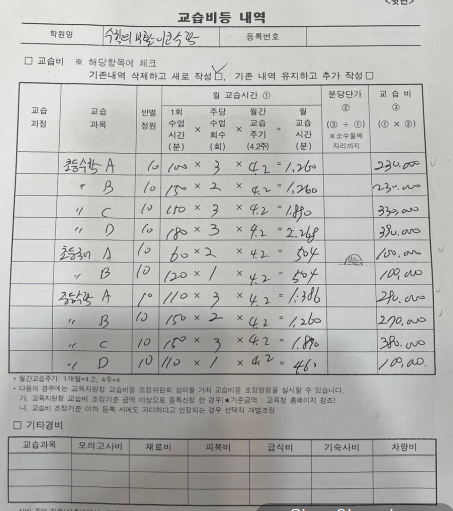 교습비등 내역
학원명
등록번호
□ 교습비 ※ 해당항목에 체크
기존내역 삭제하고 새로 작성 □, 기존 내역 유지하고 추가 작성 □
교습과정 교습과목 반별정원 월 교습시간 ① 분당단가 ② 교습비 ③
1회 수업시간(분) × 주당 수업회수(회) × 월간 교습주기(4.2주) = 월 교습시간(분) (③ ÷ ①) ※소수둘째자리까지 (① × ②)
초등수학 A 10 100 × 3 × 4.2 = 1,260 230,000
〃 B 10 150 × 2 × 4.2 = 1,260 230,000
〃 C 10 150 × 3 × 4.2 = 1,890 330,000
〃 D 10 180 × 3 × 4.2 = 2,268 380,000
초등국어 A 10 60 × 2 × 4.2 = 504 100,000
〃 B 10 120 × 1 × 4.2 = 504 100,000
중등수학 A 10 110 × 3 × 4.2 = 1,386 280,000
〃 B 10 150 × 2 × 4.2 = 1,260 270,000
〃 C 10 150 × 3 × 4.2 = 1,890 380,000
〃 D 10 110 × 1 × 4.2 = 460 100,000
* 월간교습주기: 1개월=4.2, 4주=4
* 다음의 경우에는 교육지원청 교습비등 조정위원회 심의를 거쳐 교습비등 조정명령을 실시할 수 있습니다.
가. 교육지원청 교습비 조정기준 금액 이상으로 등록신청 한 경우(★기준금액 : 교육청 홈페이지 참조)
나. 교습비 조정기준 이하 등록 시에도 과다하다고 인정되는 경우 선택적 개별조정
□ 기타경비
교습과목 모의고사비 재료비 피복비 급식비 기숙사비 차량비